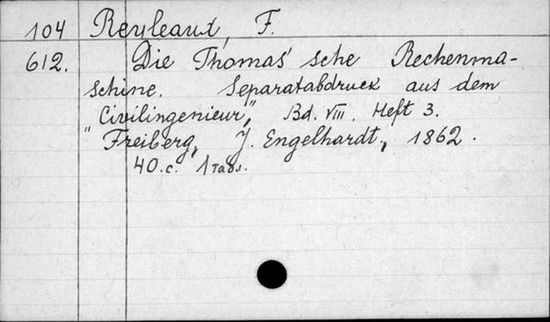 104 Reyleaux, F.
612. Die Thomas'sche Rechenma-
schine. Separatabdruck aus dem
"Civilingenieur", Bd. VIII. Heft 3.
Freiberg, J. Engelhardt, 1862.
40.c. 1 Tabs.